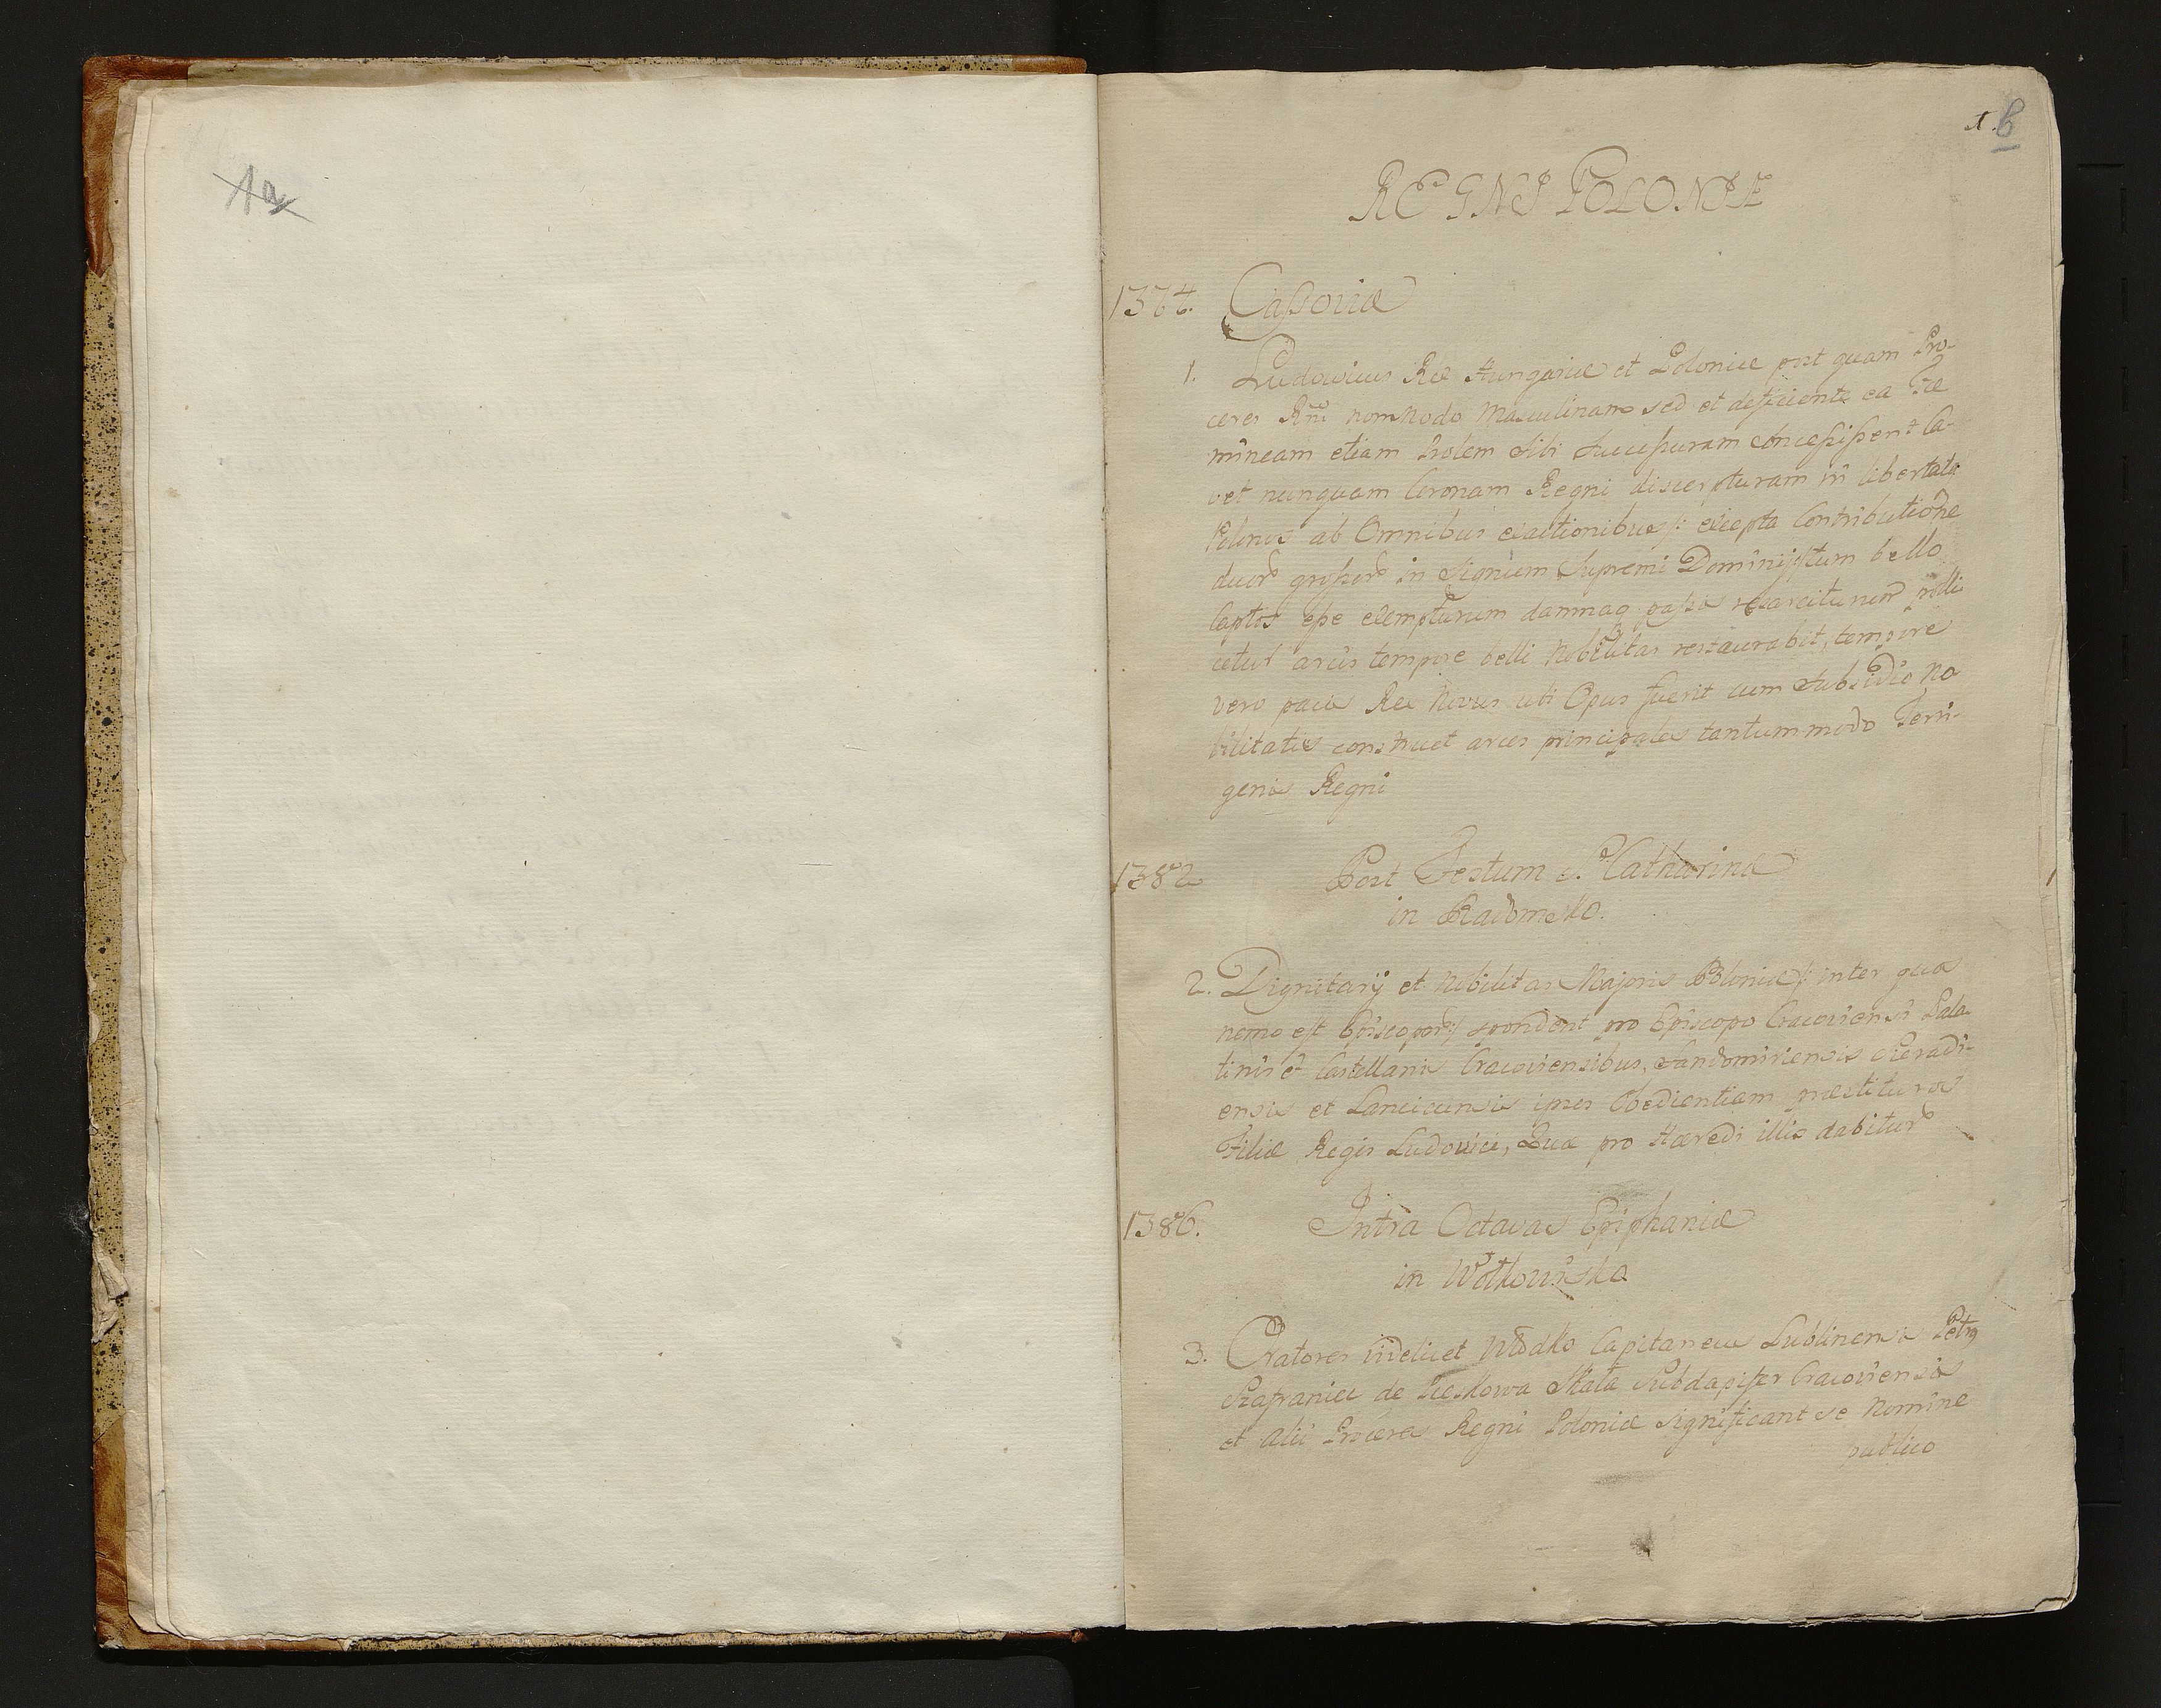 1a
1. b
REGNI POLONIÆ
1374. Cassoviæ
1. Ludovicus Rex Hungariæ et Poloniæ post quam Pro-
ceres Rni non modo Masculinam sed et deficiente ea Fæ
mineam etiam Prolem sibi Successuram concessissent Ca-
vet nunquam Coronam Regni discerpturam in libertate
Polonos ab Omnibus exactionibus /: excepta Contributione
duor grossor in Signum Supremi Dominij
bello
Captos esse exempturum damnaq passa resarciturum
arces tempore belli Nobilitas restaurabit, tempore
vero pacis Rex Novus ubi Opus fuerit cum Subsidio No
bilitatis construet arces principales tantummodo Terri-
genis Regni
1382 Post Festum S. Catharinæ
in Radomsko.
2. Dignitarij et Nobilitas Majoris Poloniæ /: inter quos
nemo est Episcopor :/ spondent pro Episcopo Cracoviensi Pala
tinis et Castellanis Cracoviensibus, Sandomiriensis Sieradi-
ensis et Lanciciensis ipsos Obedientiam præstituros
Filiæ Regis Ludovici, Quæ pro Hæredi illis dabitur
1386. Intra Octavas Epiphaniæ
in Wołkowisko
3. Oratores videlicet Włodko Capitaneus Lublinensis Petrq
Szafraniec de Pieskowa Skała Subdapifer Cracoviensis
et alii Proceres Regni Poloniæ significant se Nomine
publico